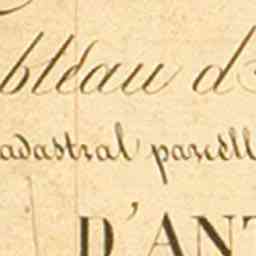 bléau d
adastral parcell
D'ANT